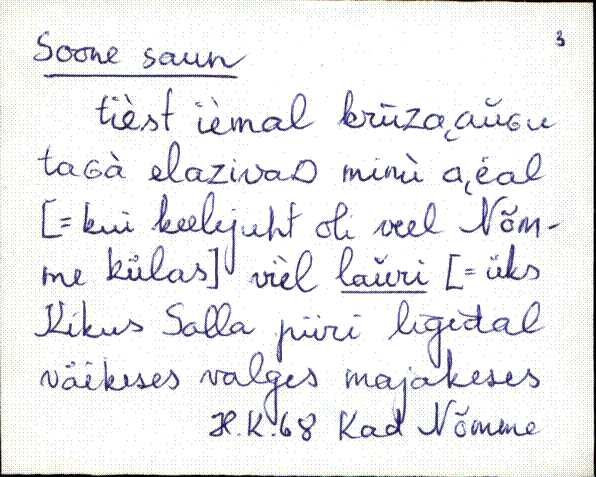 3
Soone saun
tïèst ïèmal krūza̡aŭɢu
taɢà elazivaᴅ minù a̡éal
[= kui keelejuht oli veel Nõm-
me külas] vïèl laŭri [= üks
Kikus Salla piiri līgidal
väikeses valges majakeses
H.K. 68 Kad Nõmme